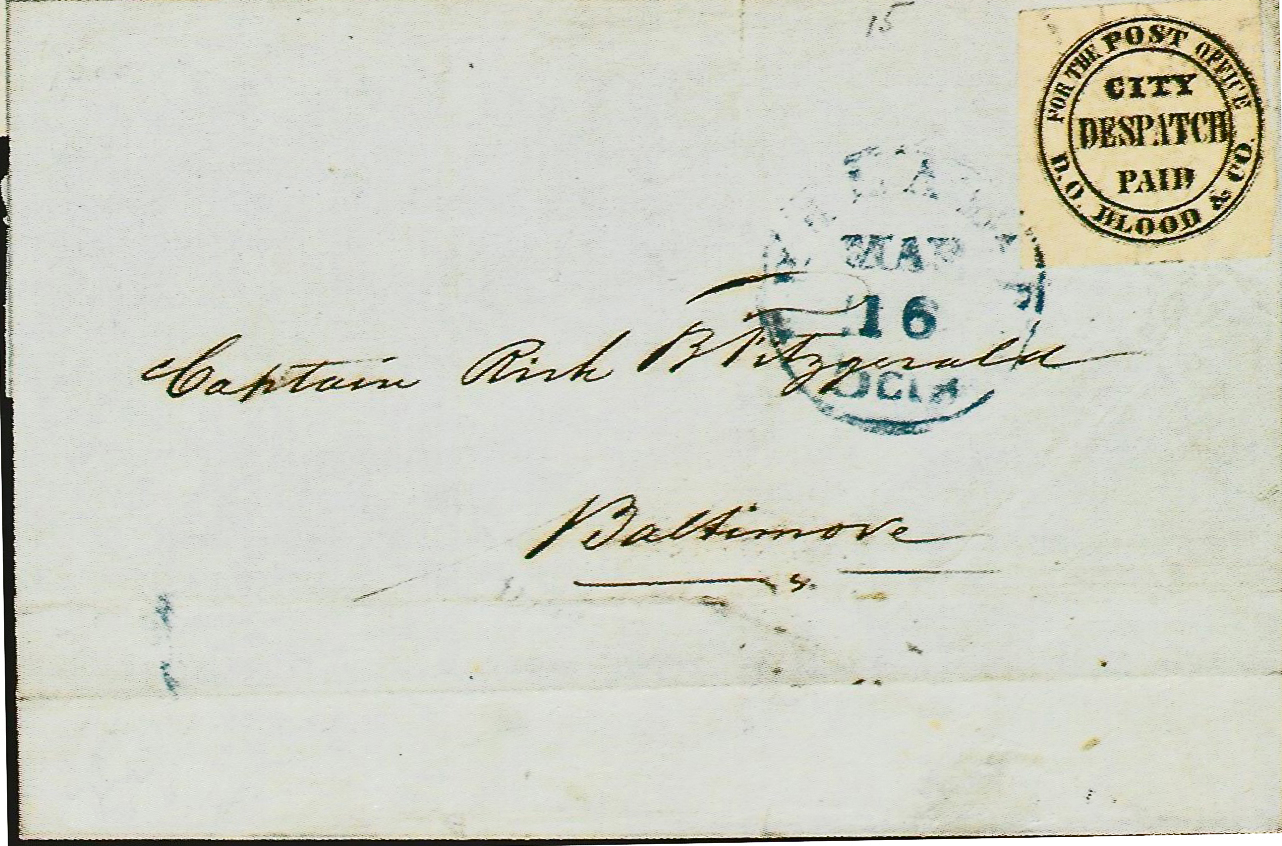 15
FOR THE POST OFFICE
CITY
DESPATCH
PAID
D.O. BLOOD & CO.
MAR
16
Captain Rich B Fitzgerald
Baltimore